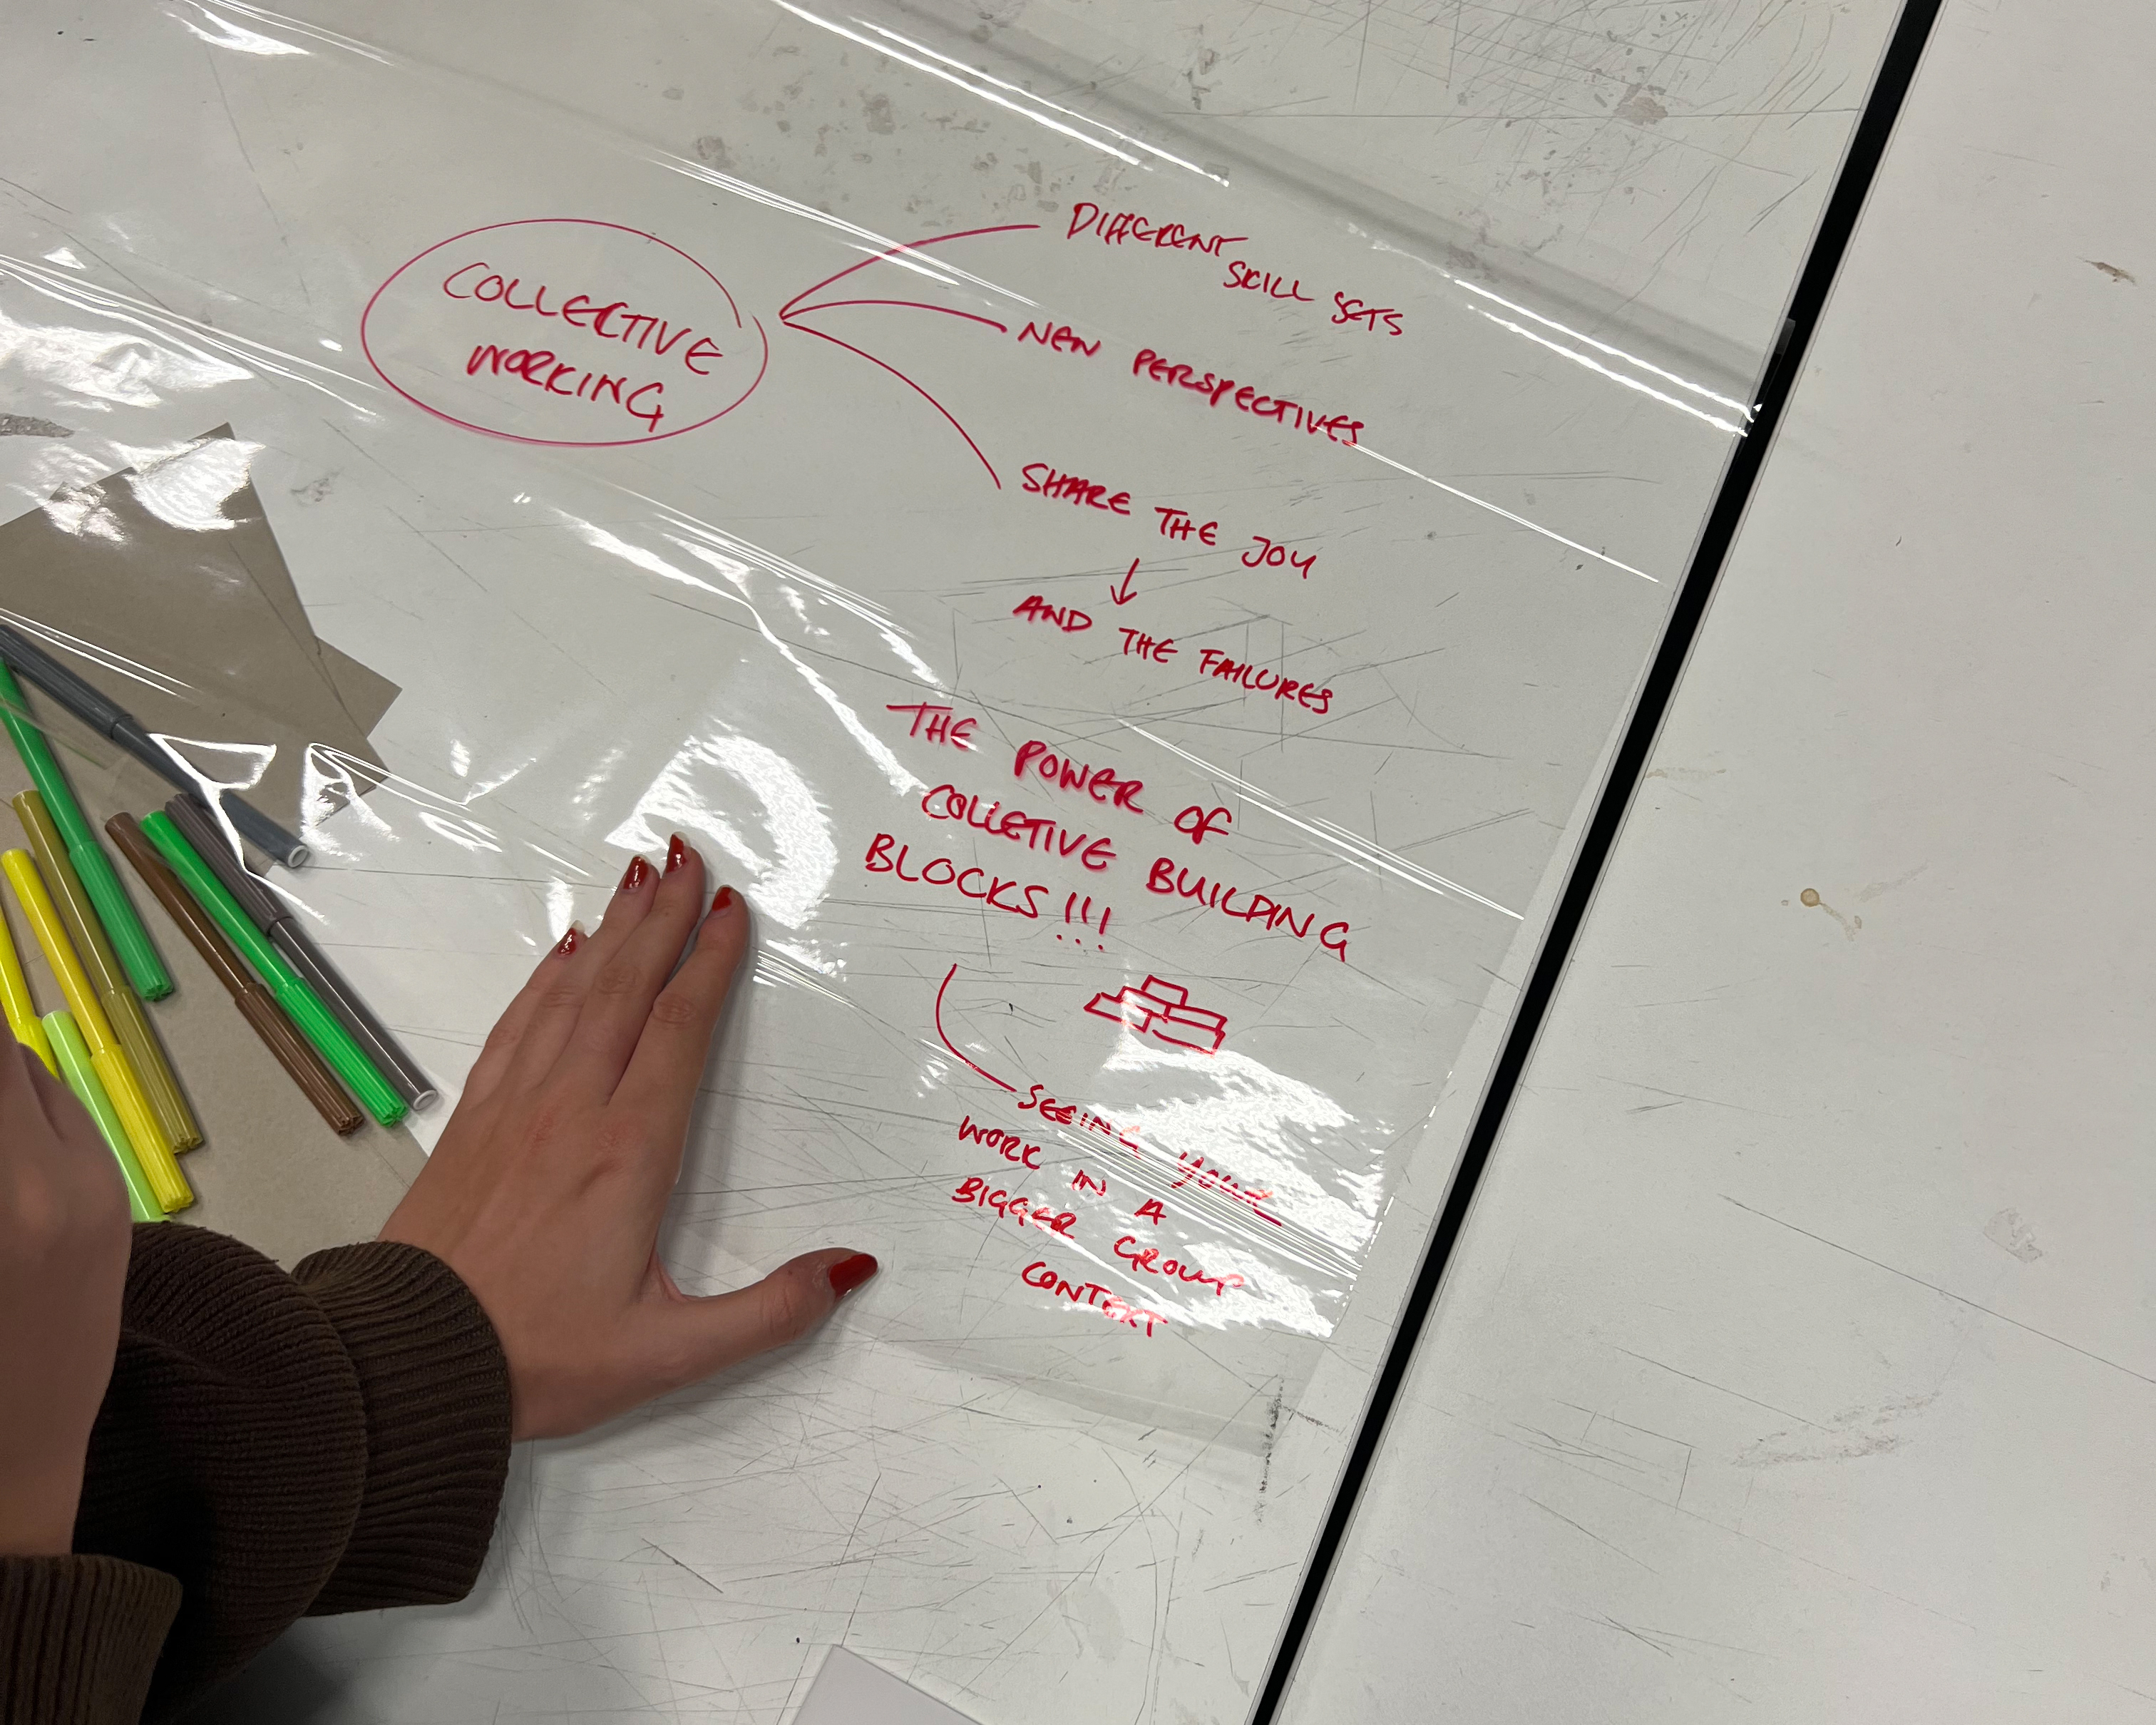 COLLECTIVE
WORKING
DIFFERENT
SKILL SETS
NEW PERSPECTIVES
SHARE THE JOY
AND THE FAILURES
THE POWER OF
COLLETIVE BUILDING
BLOCKS!!!
SEEING YOUR
WORK IN A
BIGGER GROUP
CONTEXT